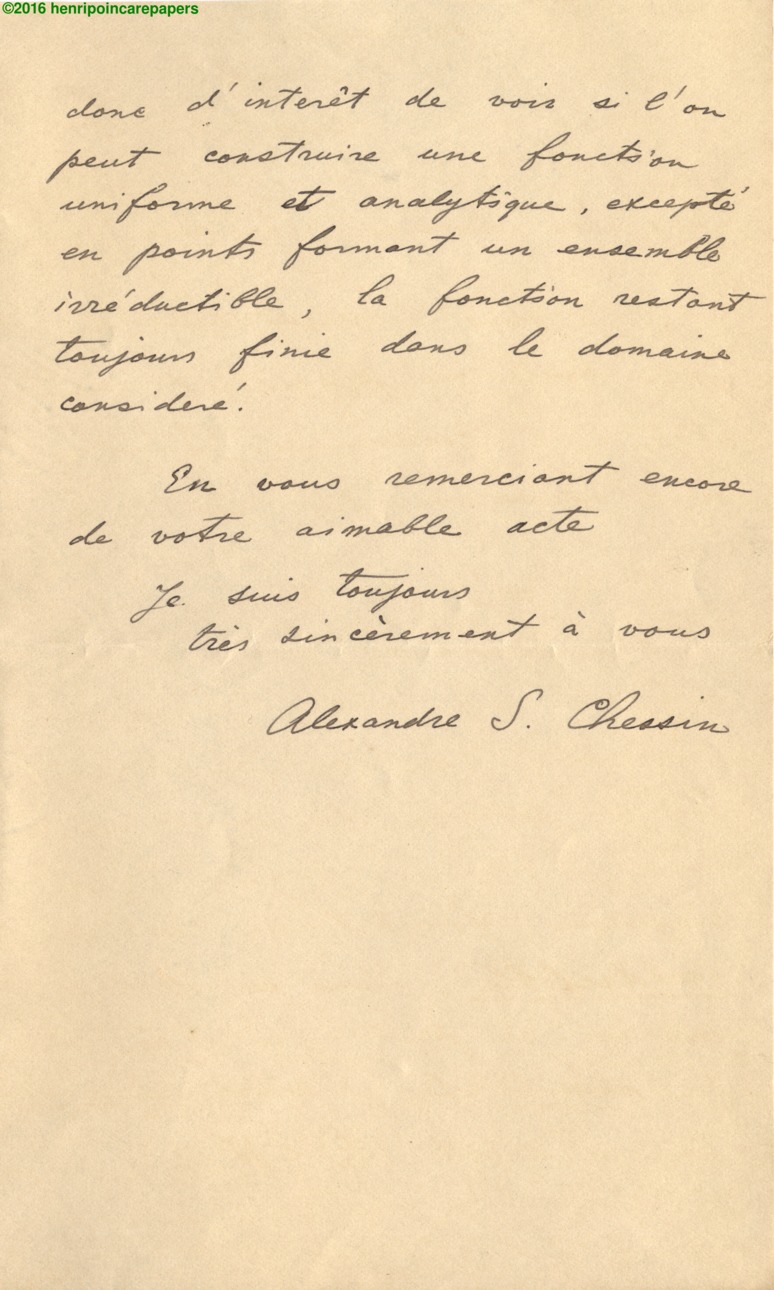 ©2016 henripoincarepapers
donc d'interêt de voir si l'on
peut construire une fonction
uniforme et analytique, excepté
en points formant un ensemble
irréductible, la fonction restant
toujours finie dans le domaine
consideré.
En vous remerciant encore
de votre aimable acte
Je suis toujours
très sincèrement à vous
Alexandre S. Chessin